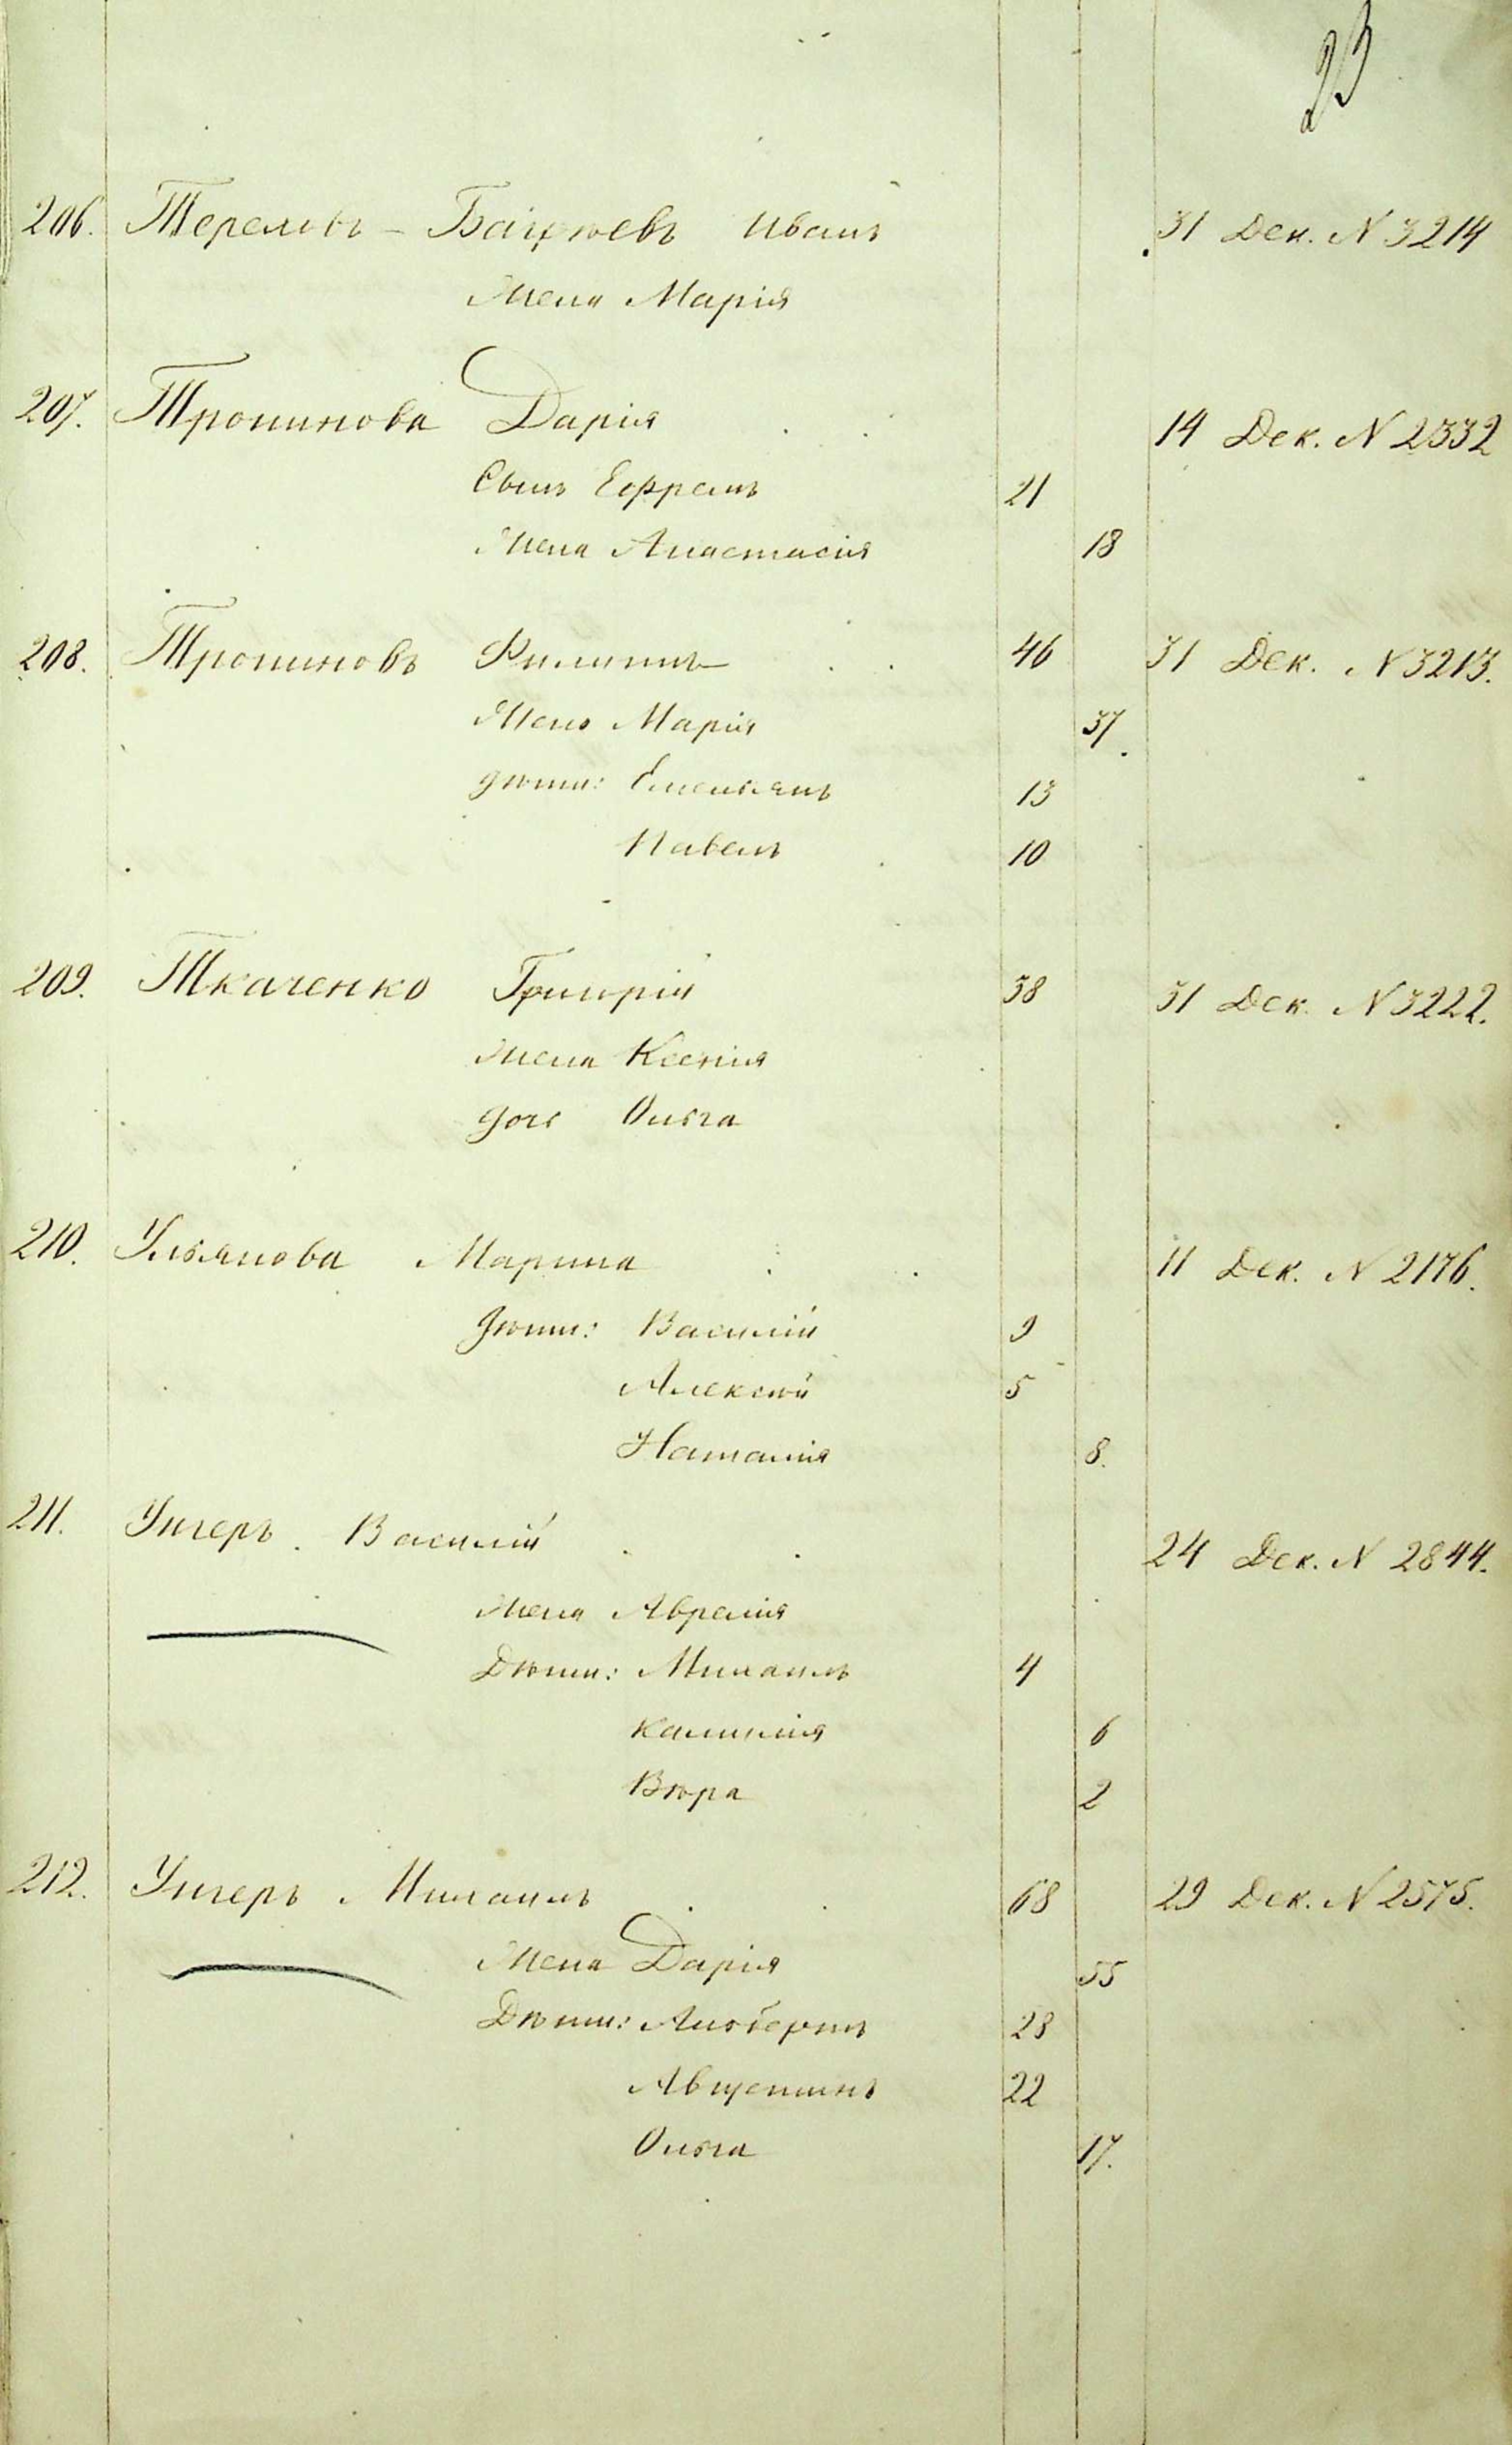 23
206. Теремовъ - Иванъ 31 Дек. N 3214
Жена Марія
207. Тропинова Дарія 14 Дек. N 2332
Сынъ Ефремъ 21
Жена Анастасія 18
208. Тропиновъ Филиппъ 46 31 Дек. N 3213.
Жена Марія 37
дѣти: Емельянъ 13
Павелъ 10
209. Ткаченко Григорій 38 31 Дек. N 3222.
Жена Ксенія
дочь Ольга
210. Ульянова Марина 11 Дек. N 2176.
Дѣти: Василій 9
Алексѣй 5
Наталія 8.
211. Унгеръ Василій 24 Дек. N 2844.
Жена Аврелія
Дѣти: Михаилъ 4
Камилія 6
Вѣра 2
212. Унгеръ Михаилъ 68 29 Дек. N 2575.
Жена Дарія 55
Дѣти: Альбертъ 28
Августинъ 22
Ольга 17.